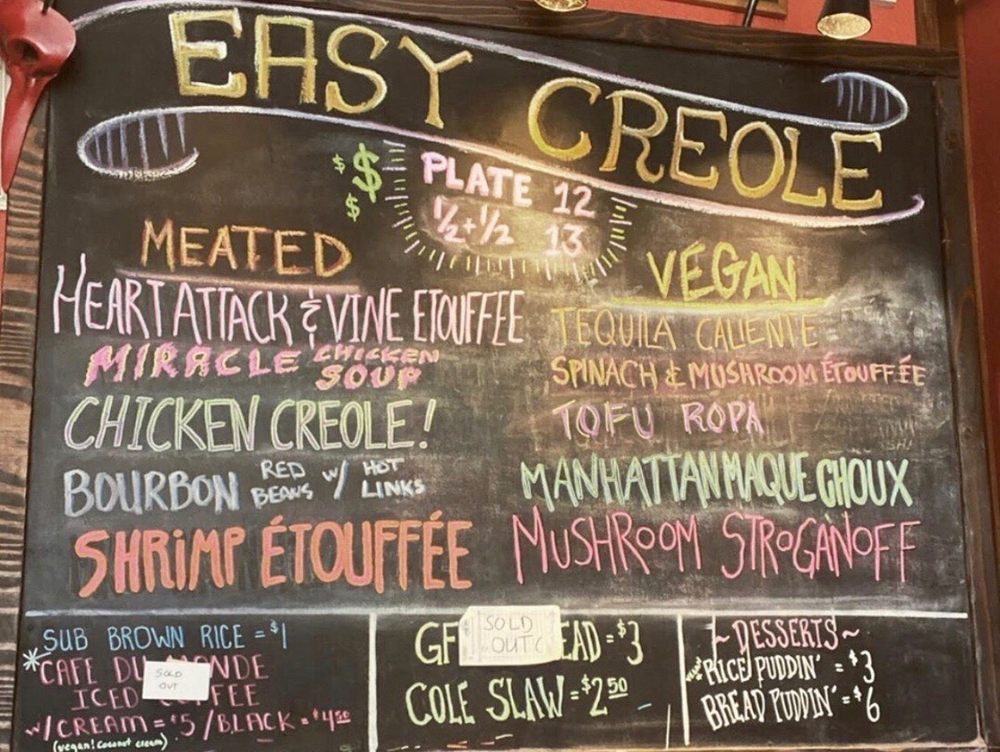 EASY CREOLE
$ $ $
PLATE 12
1/2+1/2 13
MEATED
HEART ATTACK & VINE ETOUFFEE
MIRACLE CHICKEN SOUP
CHICKEN CREOLE!
BOURBON RED BEANS w/ HOT LINKS
SHRiMP ÉTOUFFÉE
VEGAN
TEQUILA CALIENTE
SPINACH & MUSHROOM ÉTOUFFÉE
TOFU ROPA
MANHATTAN MAQUE CHOUX
MUSHROOM STROGANOFF
SUB BROWN RICE = $1
*CAFE DU MONDE
ICED FEE
SOLD OUT
w/CREAM = $5 / BLACK = $4.50
(vegan! coconut cream)
GF EAD = $3
SOLD OUT
COLE SLAW = $2.50
~ DESSERTS ~
RICE PUDDIN' = $3
BREAD PUDDIN' = $6